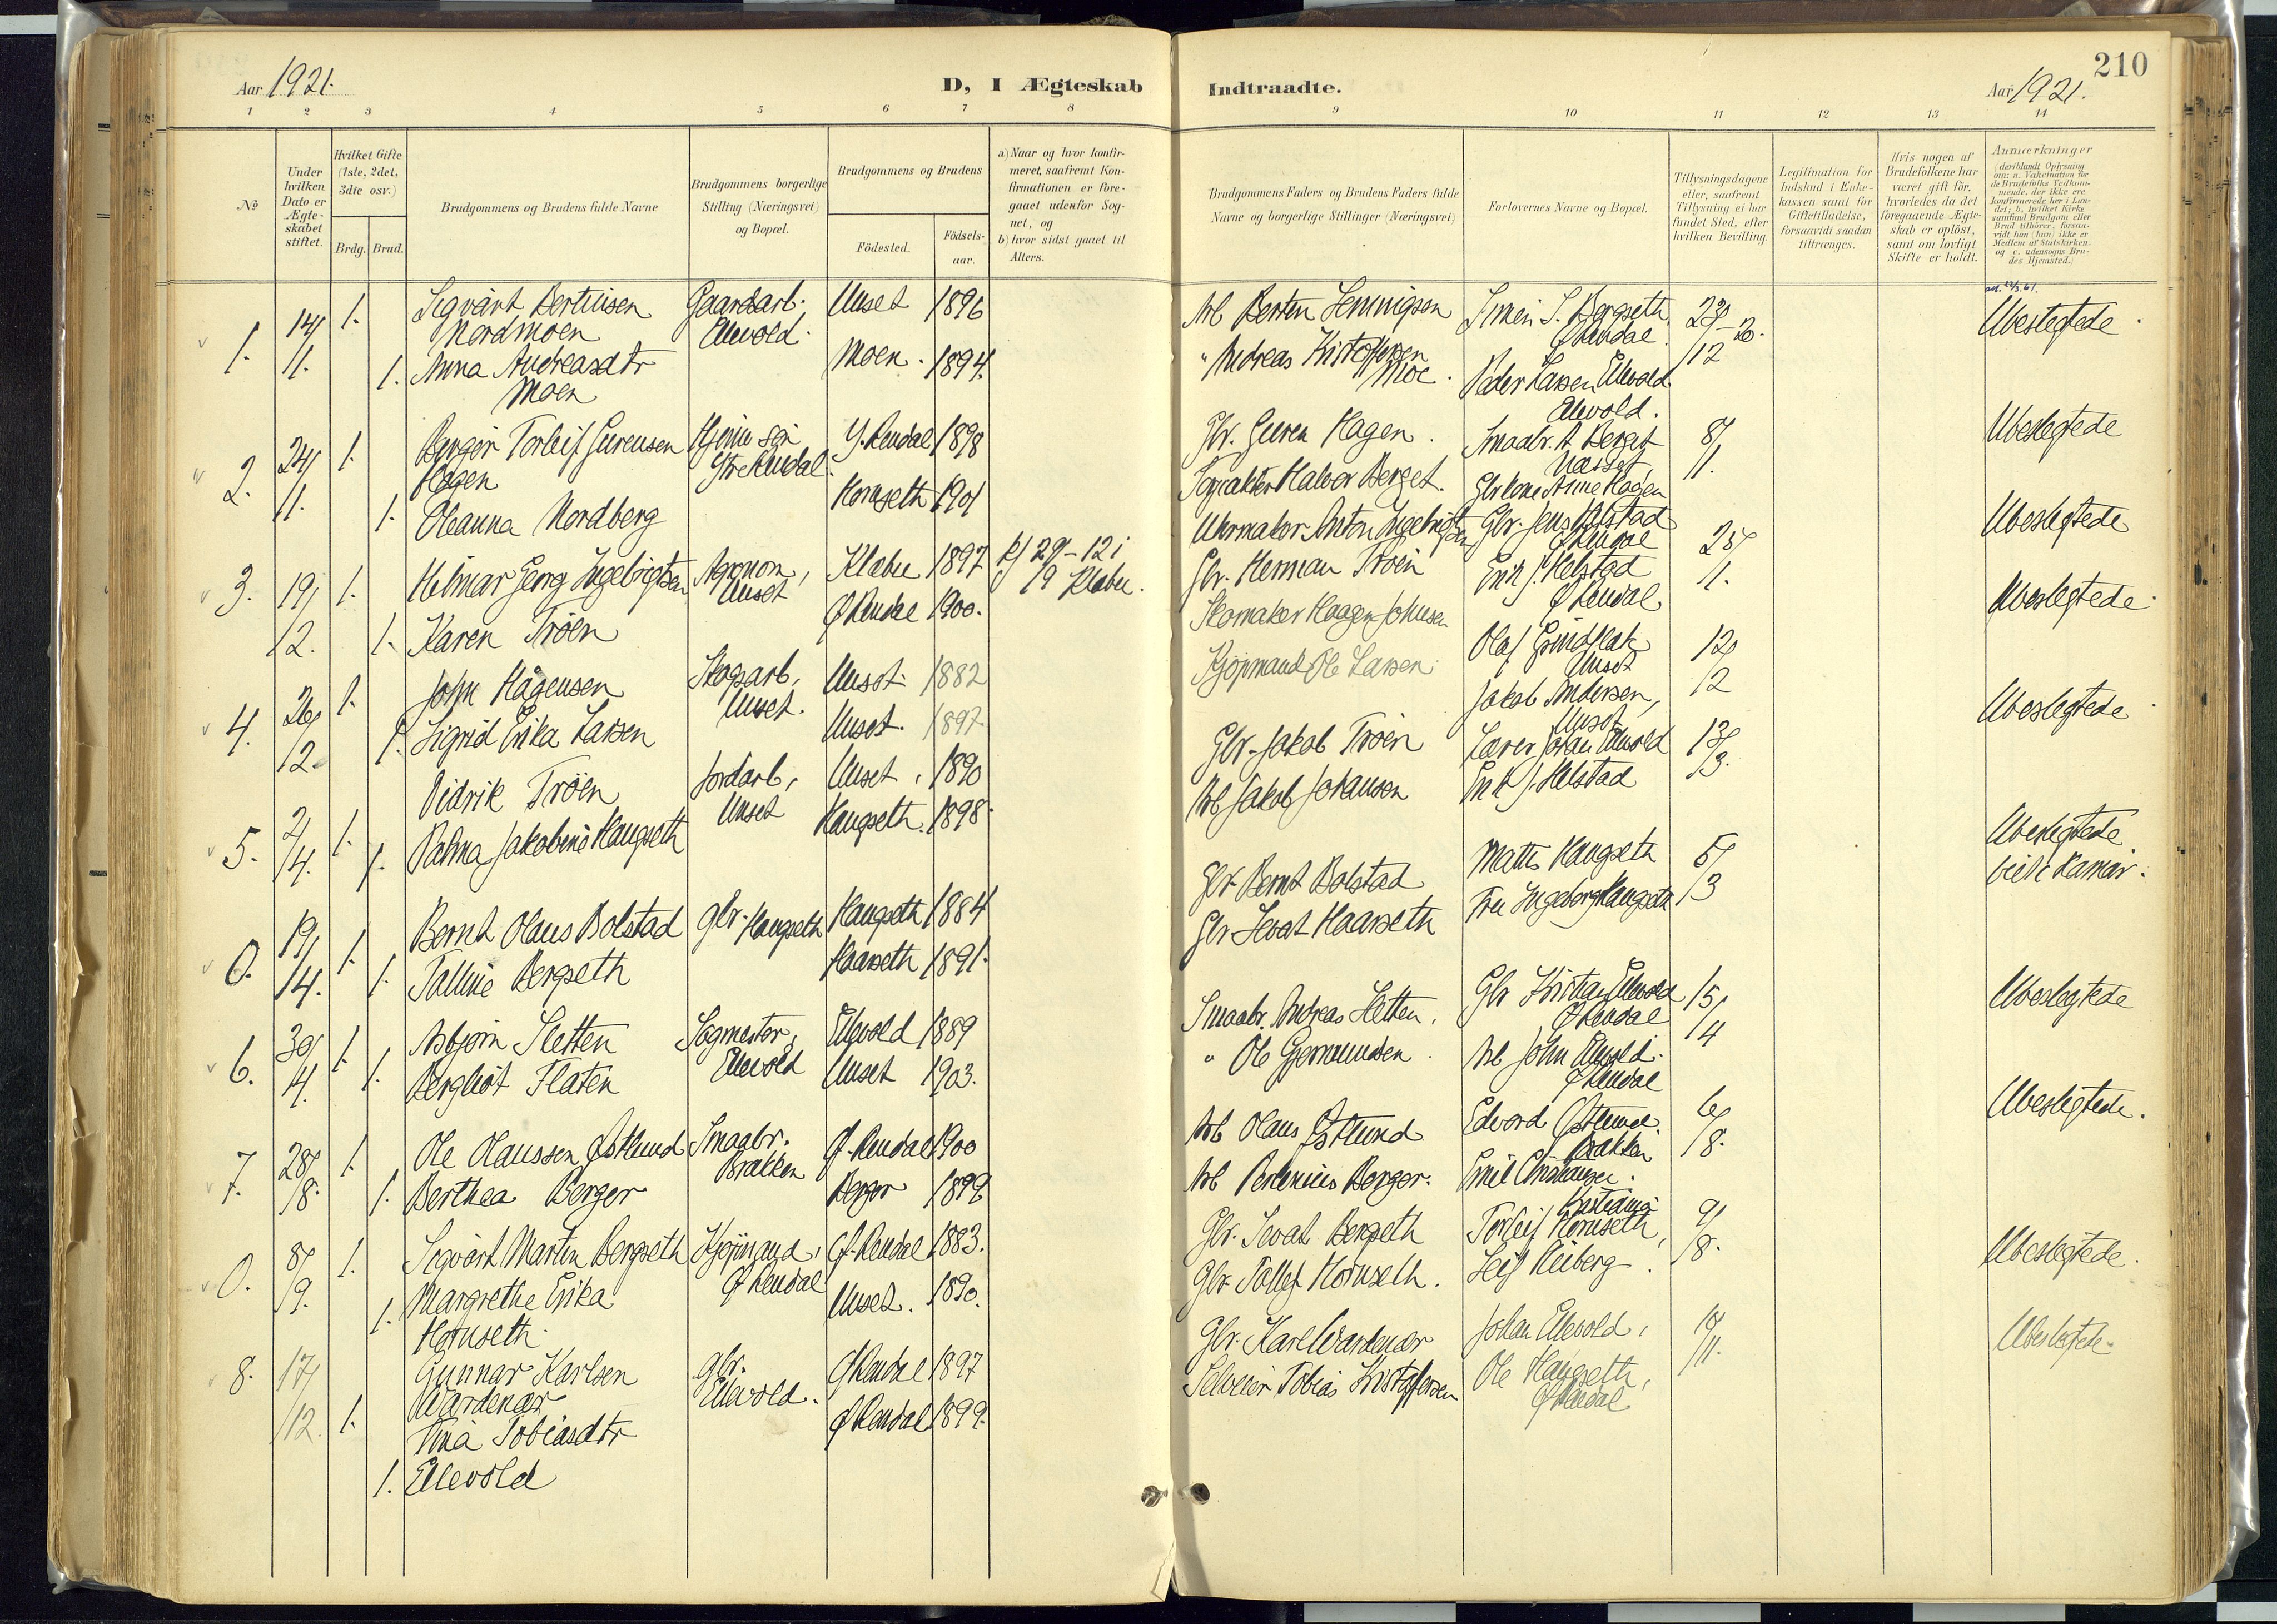 210
Aar 1921.
D, I Ægteskab Indtraadte.
Aar 1921.
1 2 3 4 5 6 7 8 9 10 11 12 13 14
№
Under hvilken Dato er Ægteskabet stiftet.
Hvilket Gifte (1ste, 2det, 3die osv.)
Brdg. Brud.
Brudgommens og Brudens fulde Navne
Brudgommens borgerlige Stilling (Næringsvei) og Bopæl.
Brudgommens og Brudens
Födested. Födsels-aar.
a) Naar og hvor konfirmeret, saafremt Konfirmationen er foregaaet udenfor Sognet, og
b) hvor sidst gaaet til Alters.
Brudgommens Faders og Brudens Faders fulde Navne og borgerlige Stillinger (Næringsvei)
Forlovernes Navne og Bopæl.
Tillysningsdagene eller, saafremt Tillysning ei har fundet Sted, efter hvilken Bevilling.
Legitimation for Indskud i Enkekassen samt for Giftetilladelse, forsaavidt saadan tiltrænges.
Hvis nogen af Brudefolkene har været gift för, hvorledes da det foregaaende Ægteskab er oplöst, samt om lovligt Skifte er holdt.
Anmerkninger
1. 14/11. 1. Sigvart Bertinsen Nordmoen Gaardarb. Ellevold. Unset 1896 Arb Bertin Hemmigsen Simen S. Bergseth Ø Rendal 23/12-20. Ubeslegtede
1. Anna Andreasdtr Moen Moen. 1894. " Andreas Kristoffersen Moe. Peder Larsen Ellevold Ellevold.
2. 24/11. 1. Torleif Gurensen Hagen Ytre Rendal Y. Rendal 1898 Gbr. Guren Hagen. 8/1. Ubeslegtede
1. Oleanna Nordberg Hornseth 1901 Halvor Berget. Anne Hagen
3. 19/12. 1. Hilmar Georg Ingebrigtsen Agronom, Unset Klæbu 1897 K/ 29-12 i 19 Klæbu. Urmaker Anton Ingebrigtsen Gbr. Jens Helstad Ø Rendal 25/1. Ubeslegtede
1. Karen Trøen Ø Rendal 1900. Gbr. Herman Trøen Erik J. Helstad Ø Rendal
4. 26/12. 1. John Hågensen Skogsarb, Unset. Unset 1882 Skomaker Haagen Johnsen Olaf Grindflek Unset 12/2 Ubeslegtede
1. Sigrid Erika Larsen Unset. 1897 Kjøpmand Ole Larsen Jakob Andersen, Unset
5. 2/4. 1. Didrik Trøen Jordarb, Unset Unset, 1890 Gbr. Jakob Trøen Lærer Johan Ellevold 13/3. Ubeslegtede
1. Palma Jakobine Haugseth Haugseth. 1898. Arb Jakob Johansen Erik J. Helstad
0. 19/14. 1. Bernt Olaus Bolstad Gbr. Haugseth Haugseth 1884 Gbr. Bernt Bolstad Mattis Haugseth 5/3 Ubeslegtede
1. Talline Bergseth Haarseth 1891. Gbr Sevat Haarseth Fru Ingeborg Haugseth
6. 30/4. 1. Asbjørn Sletten Sagmester, Ellevold Ellevold 1889 Smaabr. Andreas Sletten. Gbr Kristian Ellevold Ø Rendal 15/14 Ubeslegtede
1. Bergliot Flaten Unset 1903. " Ole Gjermundsen. Arb John Ellevold. Ø Rendal
7. 28/8. 1. Ole Olaussen Østlund Smaabr. Brækken Ø. Rendal 1900 Arb Olaus Østlund Edvard Østlund. Brækken 6/8. Ubeslegtede.
1. Berthea Berger Berger 1899 Arb Berger. Emil Kristiania
0. 8/9. 1. Sigvart Martin Bergseth Kjøpmand, Ø Rendal Ø. Rendal 1883. Gbr. Sevat Bergseth Torleif Hornseth, 9/8. Ubeslegtede.
1. Margrethe Erika Hornseth. Unset. 1890. Gbr Tollef Hornseth. Leif Kiberg.
8. 17/12. 1. Gunnar Karlsen Wardenær Gbr. Ellevold. Ø Rendal 1897 Gbr. Karl Wardenær Johan Ellevold, 18/11. Ubeslegtede.
1. Tina Tobiasdtr Ellevold Ø Rendal 1899. Selveier Tobias Kristoffersen Ole Haugseth, Ø Rendal